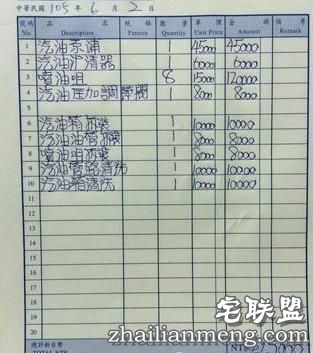 中華民國 105 年 6 月 2 日
號碼 No. 品名 Description 規格 Pattern 數量 Quantity 單價 Unit Price 金額 Amount 備考 Remark
1 汽油泵浦 1 45000 45000
2 汽油沪清器 1 6000 6000
3 噴油咀 8 15000 120000
4 汽油压加調節閥 1 8000 8000
5
6 汽油箱拆裝 1 10000 10000
7 汽油油管拆裝 1 8000 8000
8 噴油咀拆裝 1 8000 8000
9 汽油管路清洗 1 10000 10000
10 汽油箱清洗 1 10000 10000
11
12
13
14
15
16
17
18
19
20
總計新台幣
TOTAL NT$ NT$
宅联盟
zhailianmeng.com